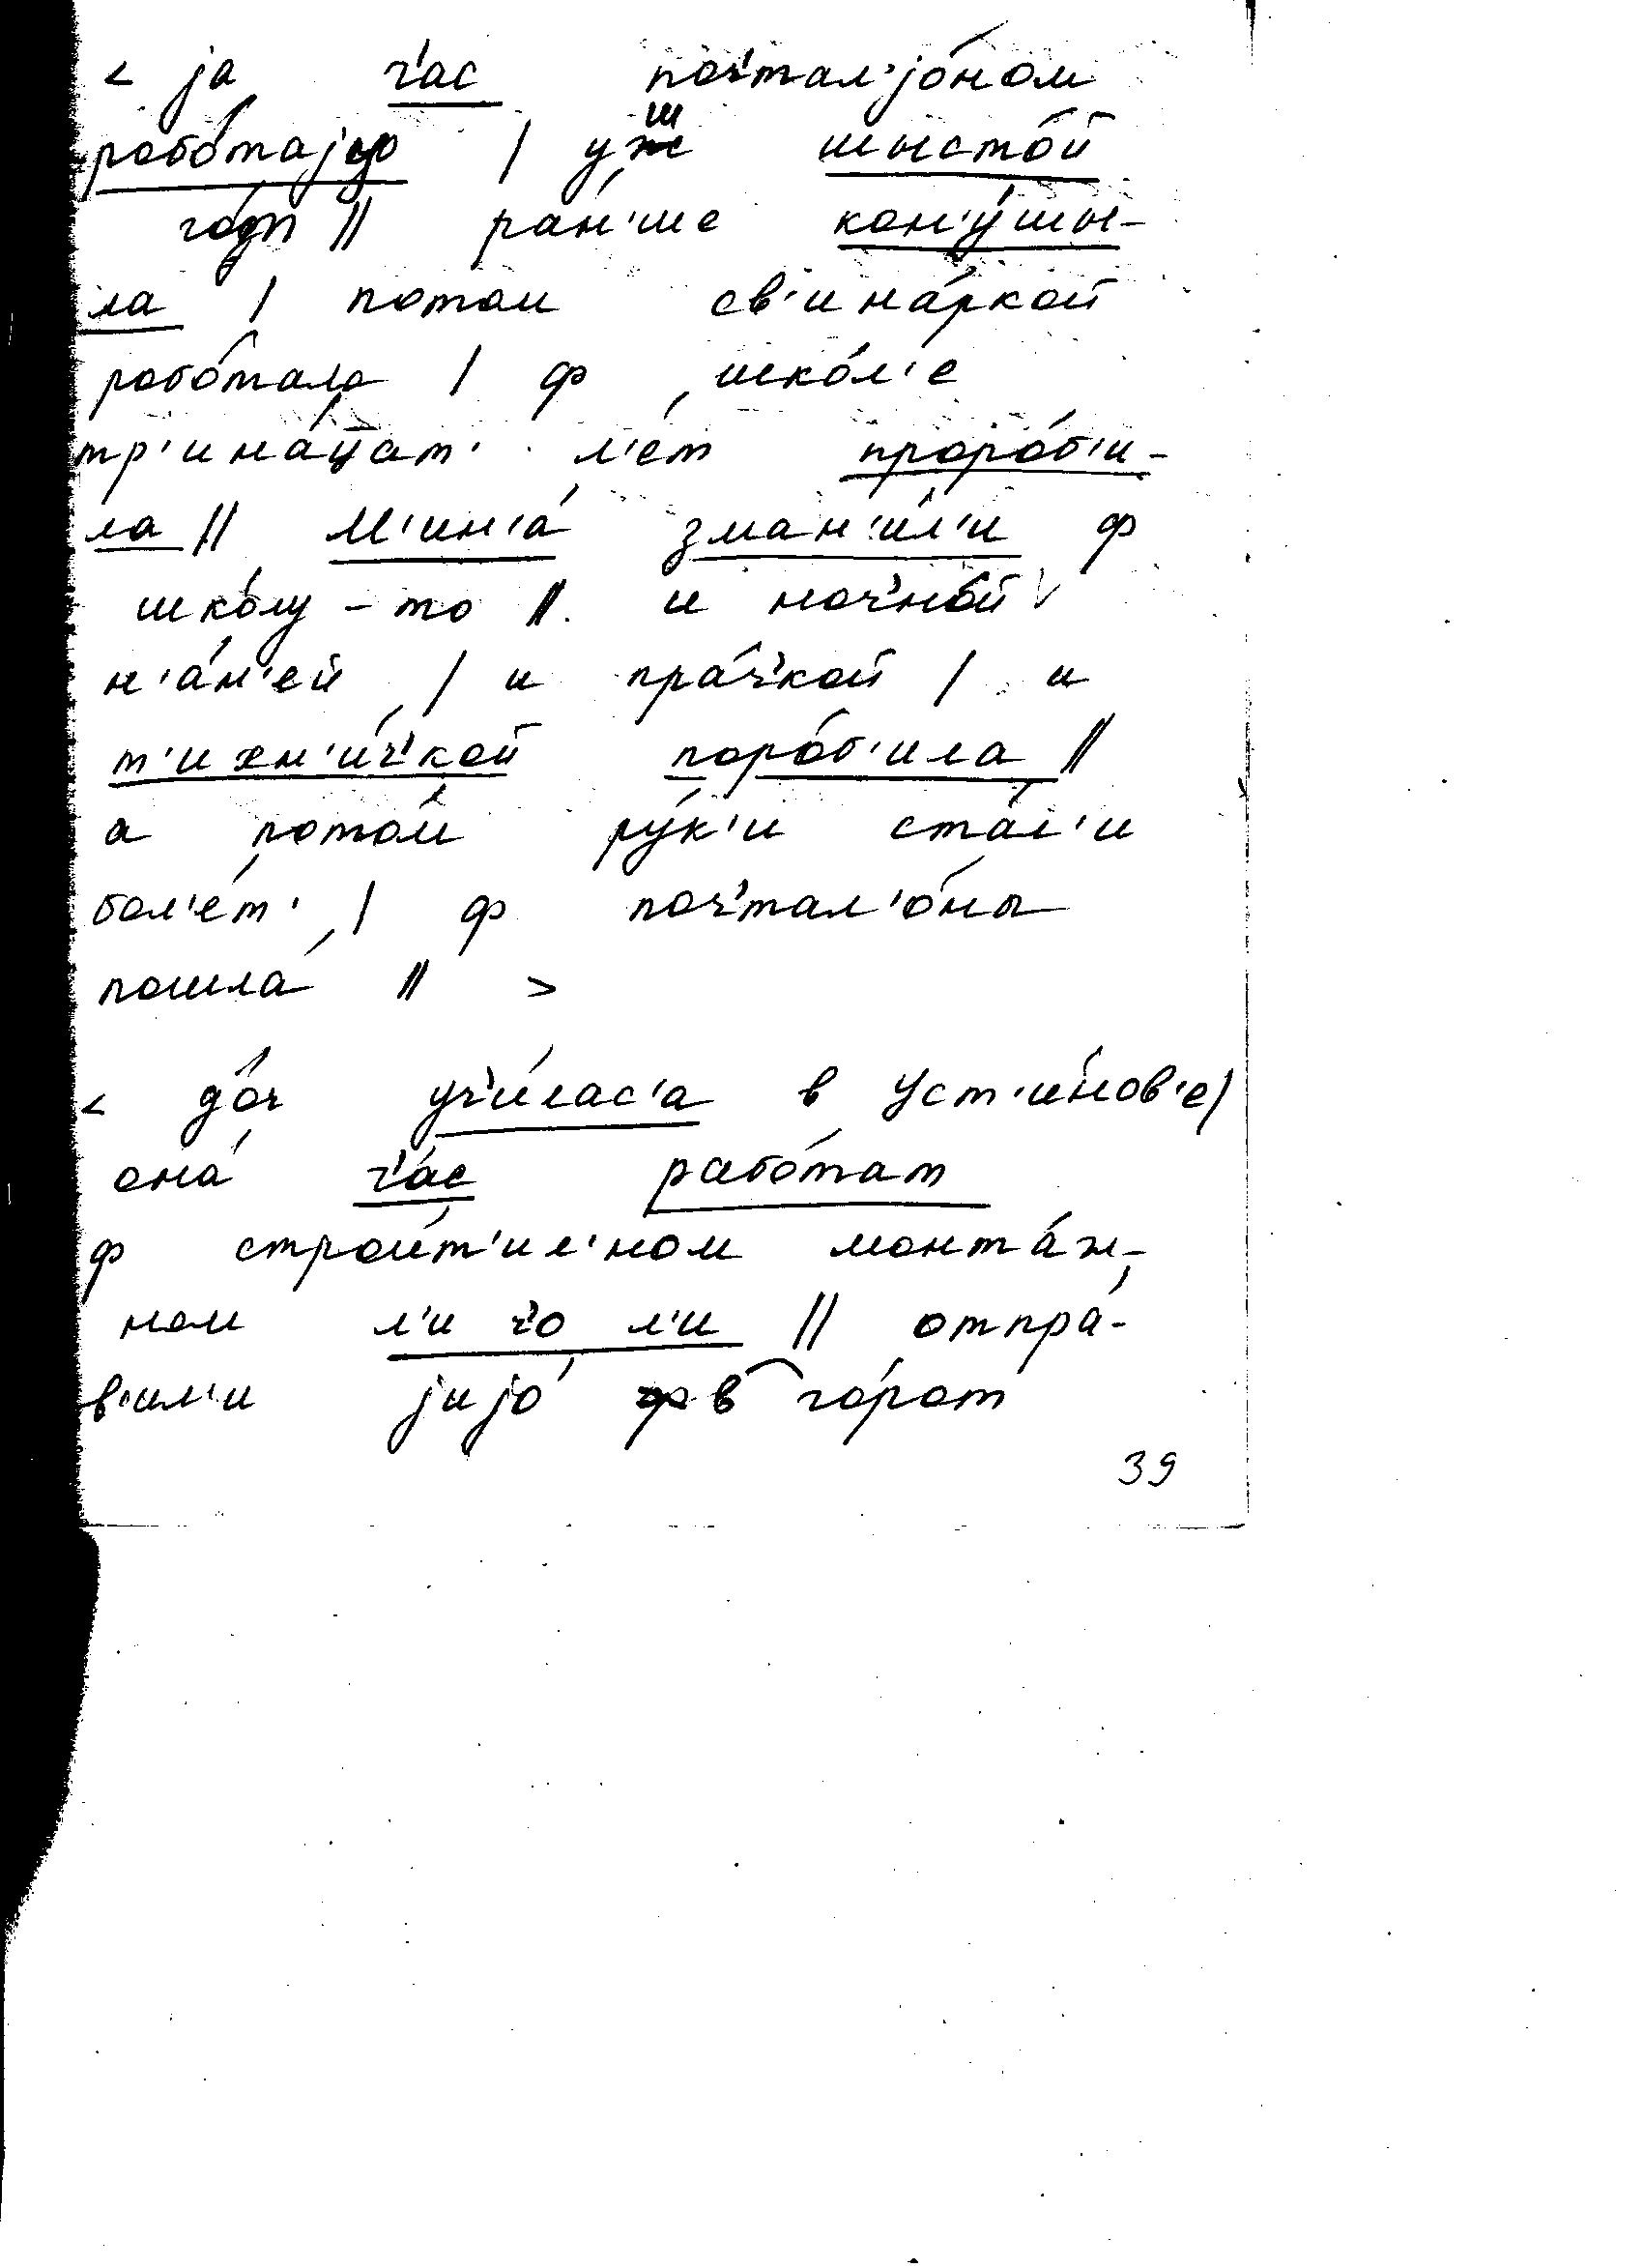 < jа ч'ас поч'тал'jо́ном
рабо́таjу | уш шысто́й
го́т || ра́н'ше кон'у́шы-
ла | потом св'ина́ркой
рабо́тала | ф шко́л'е
тр'ина́цат' л'е́т проро́б'и-
ла || м'ин'а́ зман'и́л'и ф
шко́лу-то || и ноч'но́й
н'а́н'ей | и пра́ч'кой | и
т'ихн'и́ч'кой поро́б'ила ||
а пото́м ру́к'и ста́л'и
бол'е́т' | ф поч'тал'о́ны
пошла́ || >
< до́ч уч'и́лас'а в Уст'и́нов'е |
она́ ч'а́с рабо́тат
ф строи́т'ил'ном монта́ж-
ном л'и ч'о л'и || отпра́-
в'ил'и jиjо́ в го́рот
39